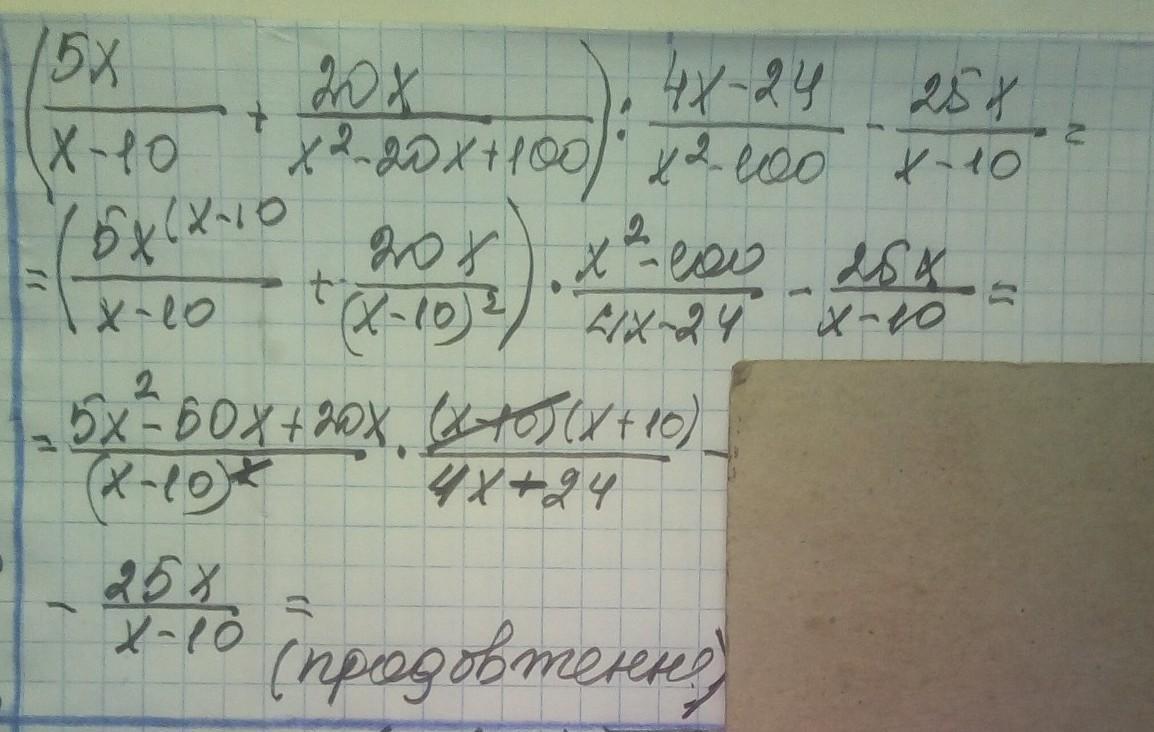 (5x/(x-10) + 20x/(x²-20x+100)) : (4x-24)/(x²-100) - 25x/(x-10) =
= (5x^(x-10/(x-10) + 20x/(x-10)²) · (x²-100)/(4x-24) - 25x/(x-10) =
= (5x²-50x+20x)/(x-10)² · (x-10)(x+10)/(4x-24) -
- 25x/(x-10) =
(продовження)